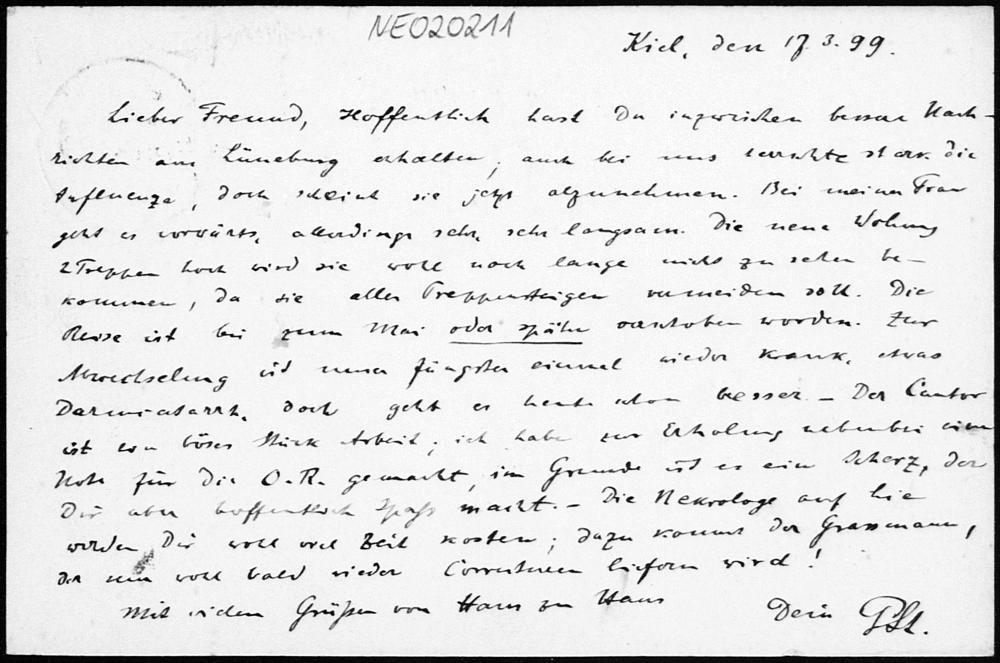 NE020211
Kiel, den 17.3.99.
Lieber Freund, Hoffentlich hast Du inzwischen bessere Nach-
richten aus Lüneburg erhalten; auch bei uns herrschte stark die
Influenza, doch scheint sie jetzt abzunehmen. Bei meiner Frau
geht es vorwärts, allerdings sehr, sehr langsam. Die neue Wohnung
2 Treppen hoch wird sie wohl noch lange nicht zu sehen be-
kommen, da sie alles Treppensteigen vermeiden soll. Die
Reise ist bis zum Mai oder später verschoben worden. Zur
Abwechselung ist unser Jüngster einmal wieder krank, etwas
Darmcatarrh, doch geht es heute schon besser. – Der Cantor
ist ein böses Stück Arbeit; ich habe zur Erholung nebenbei eine
Note für die O.-R. gemacht, im Grunde ist es ein Scherz, der
Dir aber hoffentlich Spaß macht. – Die Nekrologe auf Lie
werden Dir wohl viel Zeit kosten; dazu kommt der Grassmann,
der nun wohl bald wieder Correcturen liefern wird!
Mit vielen Grüßen von Haus zu Haus
Dein PSt.